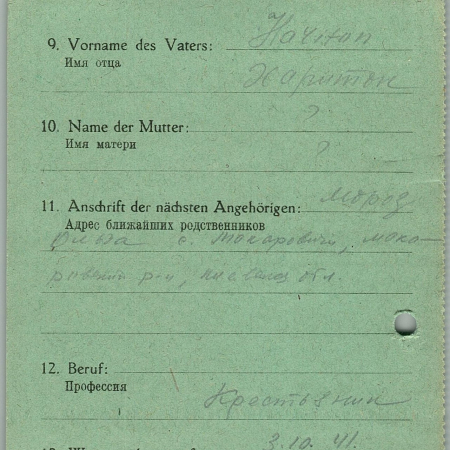 9. Vorname des Vaters:
Имя отца
Харитон
10. Name der Mutter: ?
Имя матери ?
11. Anschrift der nächsten Angehörigen: Мороз
Адрес ближайших родственников
с. Макаровичи, мака-
р-н, обл.
12. Beruf:
Профессия
Крестьянин
3.10.41.